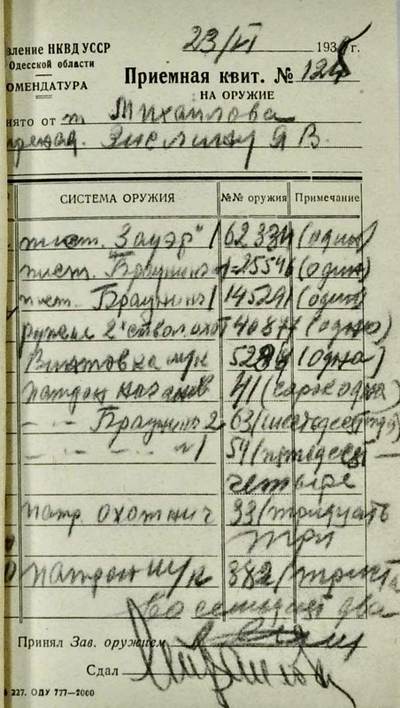 вление НКВД УССР
Одесской области
ОМЕНДАТУРА
23/VI 1938 г.
Приемная квит. № 124
НА ОРУЖИЕ
нято от т. Михайлова
Я В.
СИСТЕМА ОРУЖИЯ №№ оружия Примечание
пист. Зауэр" 1 62334 (один)
пист. Браунинг 1 25546 (один)
пист. Браунинг 1 14529 (один)
ружье 2х ствол. охот 40877 (одно)
Винтовка м/к (одна)
патрон наганов 41 (сорок одна)
— " — Браунинг 2 63 (шестьдесят три)
— " — " 1 54 (пятьдесят —
четыре
патр охотнич 33 (тридцать
три
патрон м/к 382 (триста
восемьдесят два
Принял Зав. оружием
Сдал
227. ОДУ 777—2000